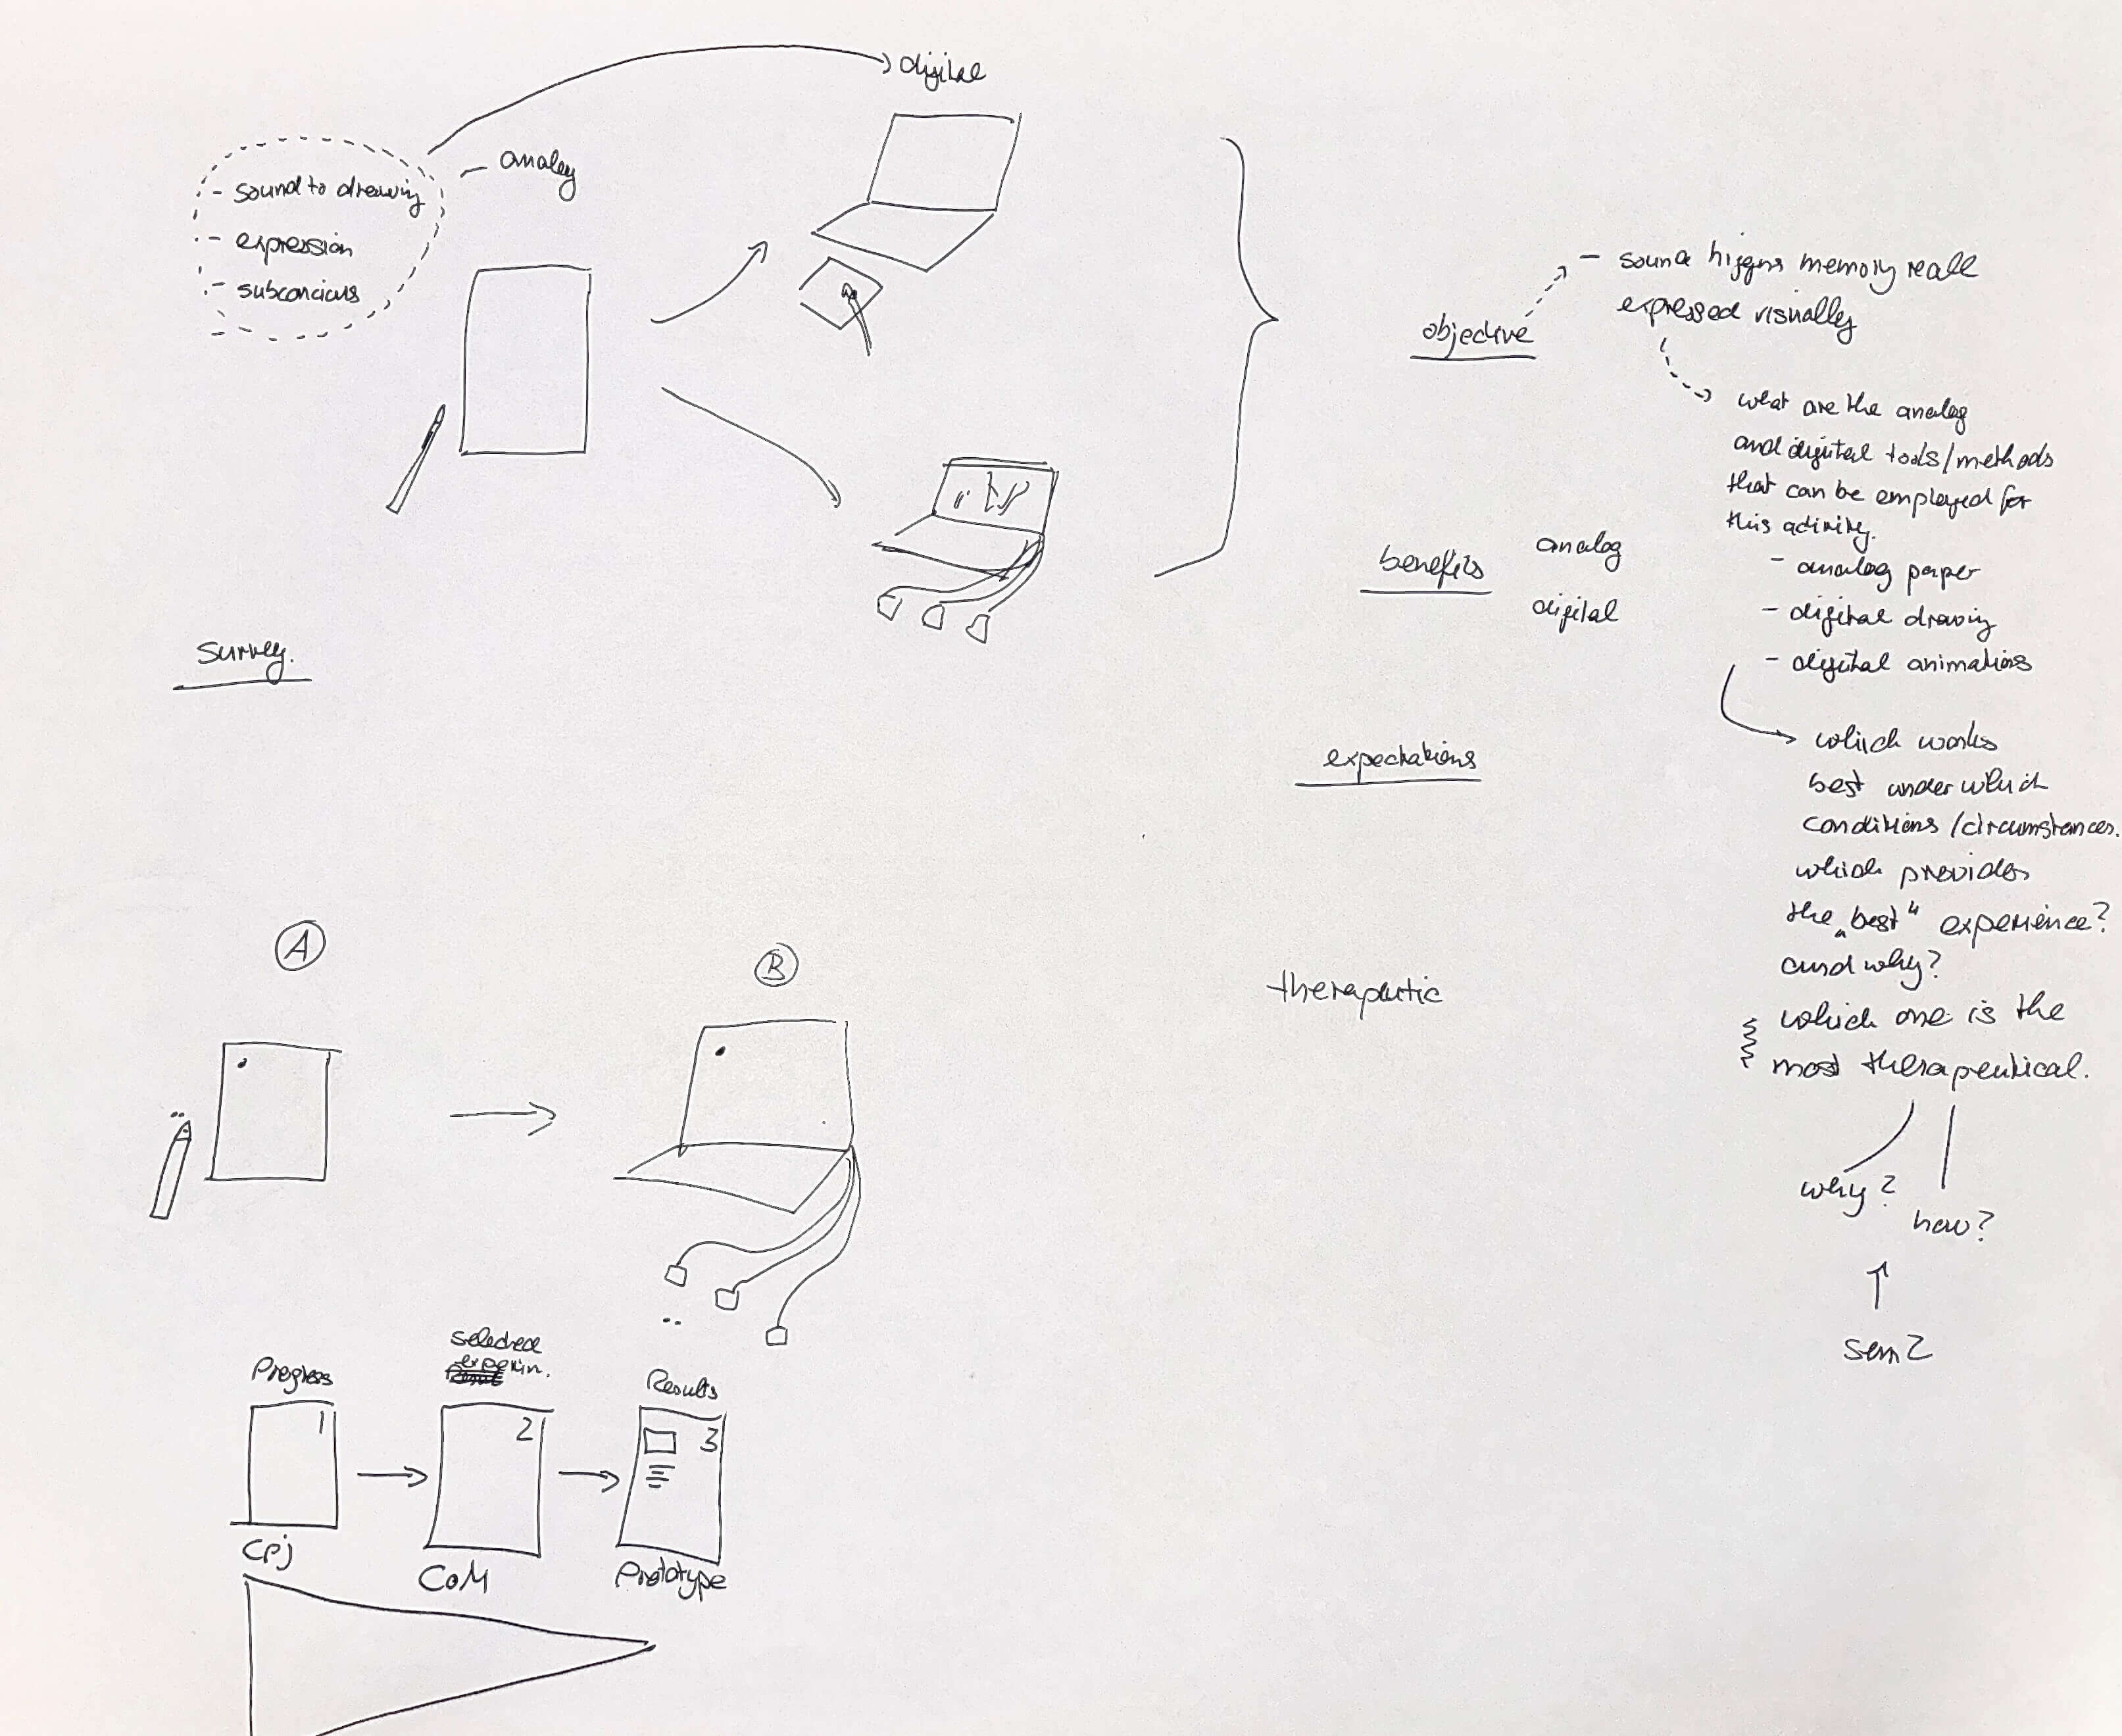 digital
analog
- sound to drawing
- expression
- subconcious
-
objective
- sound triggers memory recall
expressed visually
what are the analog
and digital tools/methods
that can be employed for
this activity.
- analog paper
- digital drawing
- digital animations
benefits
analog
digital
survey.
which works
best under which
conditions/circumstances.
which provides
the „best" experience?
and why?
which one is the
most therapeutical.
why?
how?
sem 2
expectations
therapeutic
A
B
Progress
1
Cpj
selected
experim.
2
CoM
Results
3
Prototype